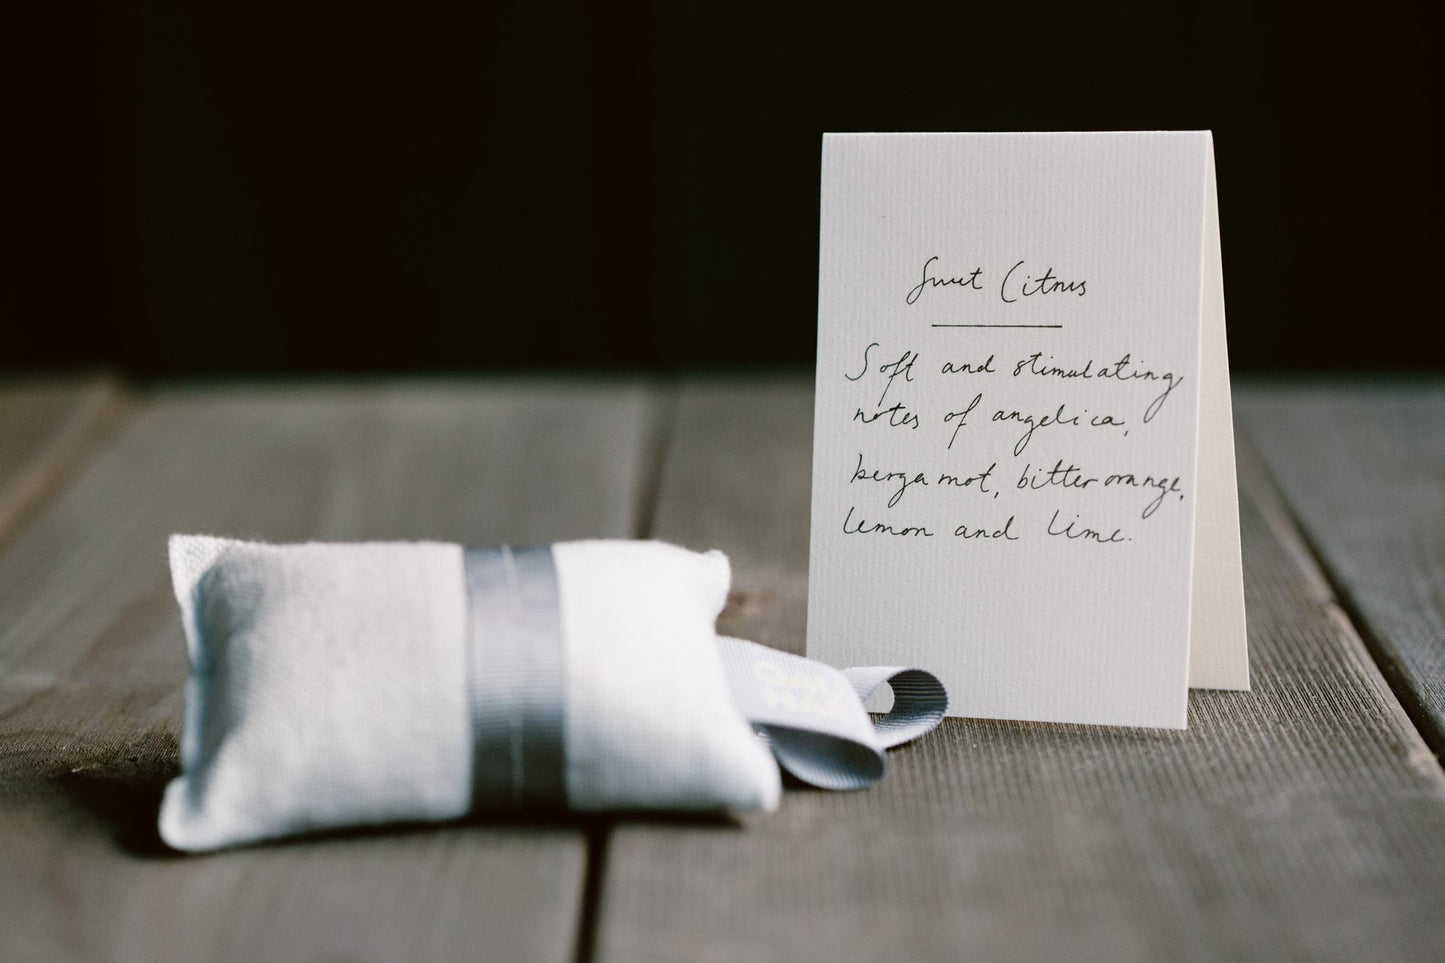 Sweet Citrus
Soft and stimulating
notes of angelica,
bergamot, bitter orange,
lemon and lime.